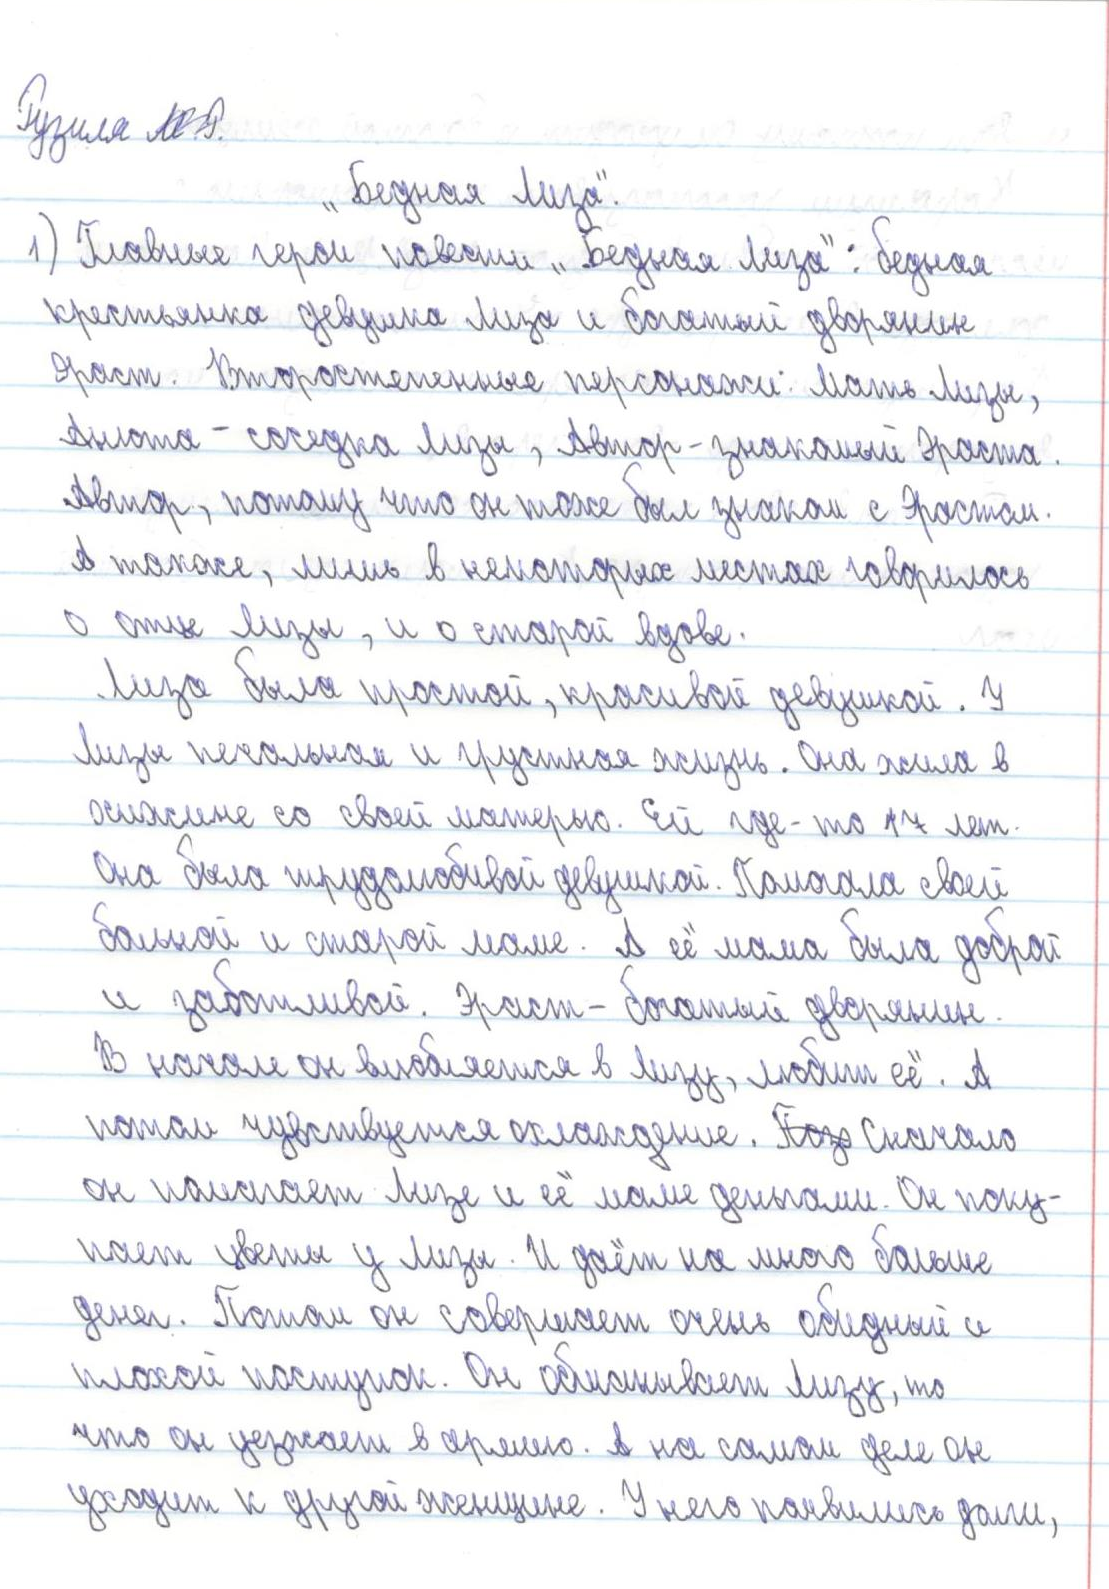 Рузиля М.Р.
„Бедная Лиза".
1) Главные герои повести „Бедная Лиза": бедная
крестьянка девушка Лиза и богатый дворянин
Эраст. Второстепенные персонажи: Мать Лизы,
Анюта - соседка Лизы, Автор - знакомый Эраста.
Автор, потому что он тоже был знаком с Эрастом.
А также, лишь в некоторых местах говорилось
о отце Лизы, и о старой вдове.
Лиза была простой, красивой девушкой. У
Лизы печальная и грустная жизнь. Она жила в
хижине со своей матерью. Ей где-то 17 лет.
Она была трудолюбивой девушкой. Помогала своей
больной и старой маме. А её мама была доброй
и заботливой. Эраст - богатый дворянин.
В начале он влюбляется в Лизу, любит её. А
потом чувствуется охлаждение. Поз Сначало
он помогает Лизе и её маме деньгами. Он поку-
пает цветы у Лизы. И даёт на много больше
денег. Потом он совершает очень обидный и
плохой поступок. Он обманывает Лизу, то
что он уезжает в армию. А на самом деле он
уходит к другой женщине. У него появились долги,